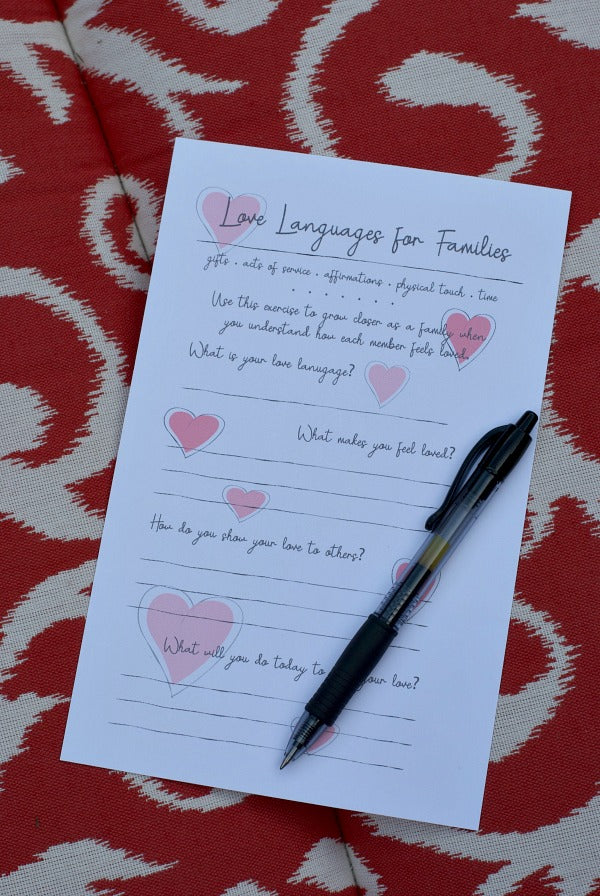 Love Languages for Families
gifts . acts of service . affirmations . physical touch . time
Use this exercise to grow closer as a family when
you understand how each member feels loved.
What is your love lanugage?
What makes you feel loved?
How do you show your love to others?
What will you do today to your love?